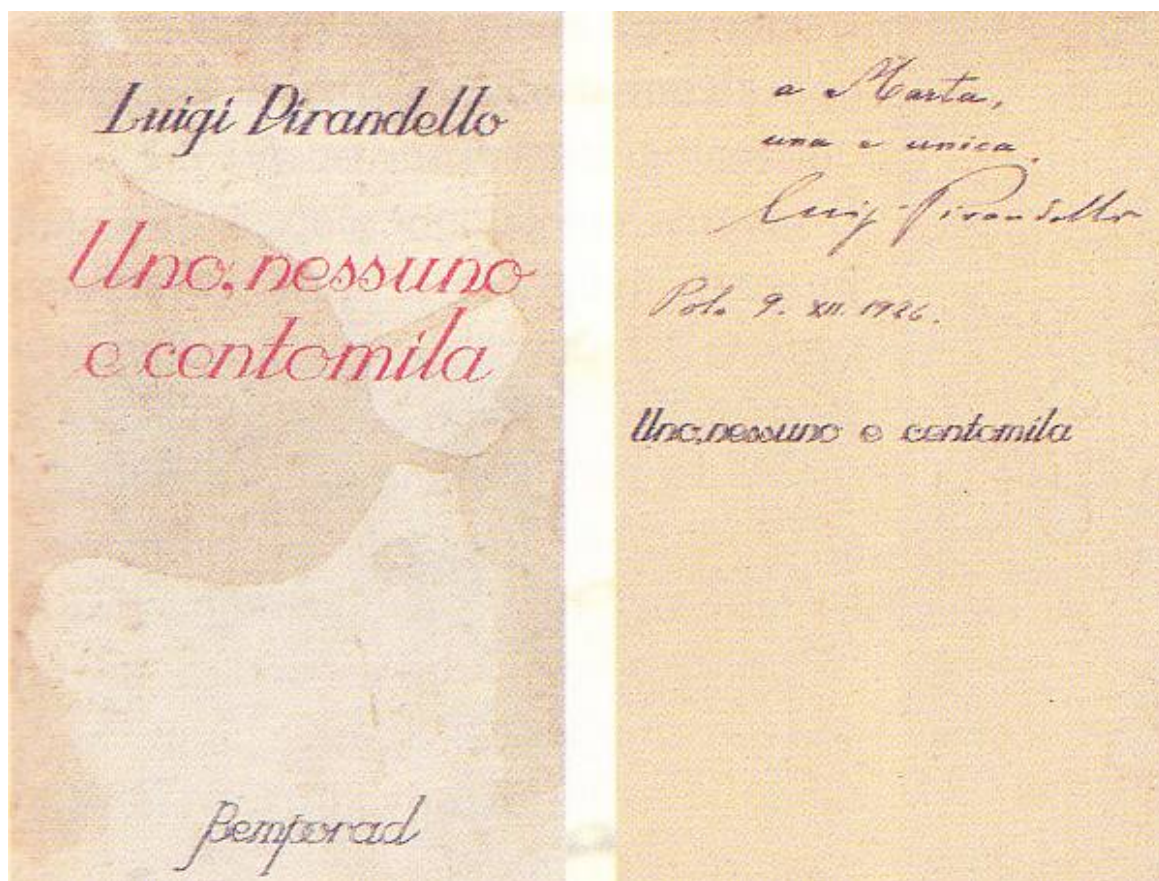 Luigi Pirandello
Uno, nessuno
e centomila
Bemporad
a Marta,
una e unica.
Luigi Pirandello
Pola 9. XII. 1926.
Uno, nessuno e centomila